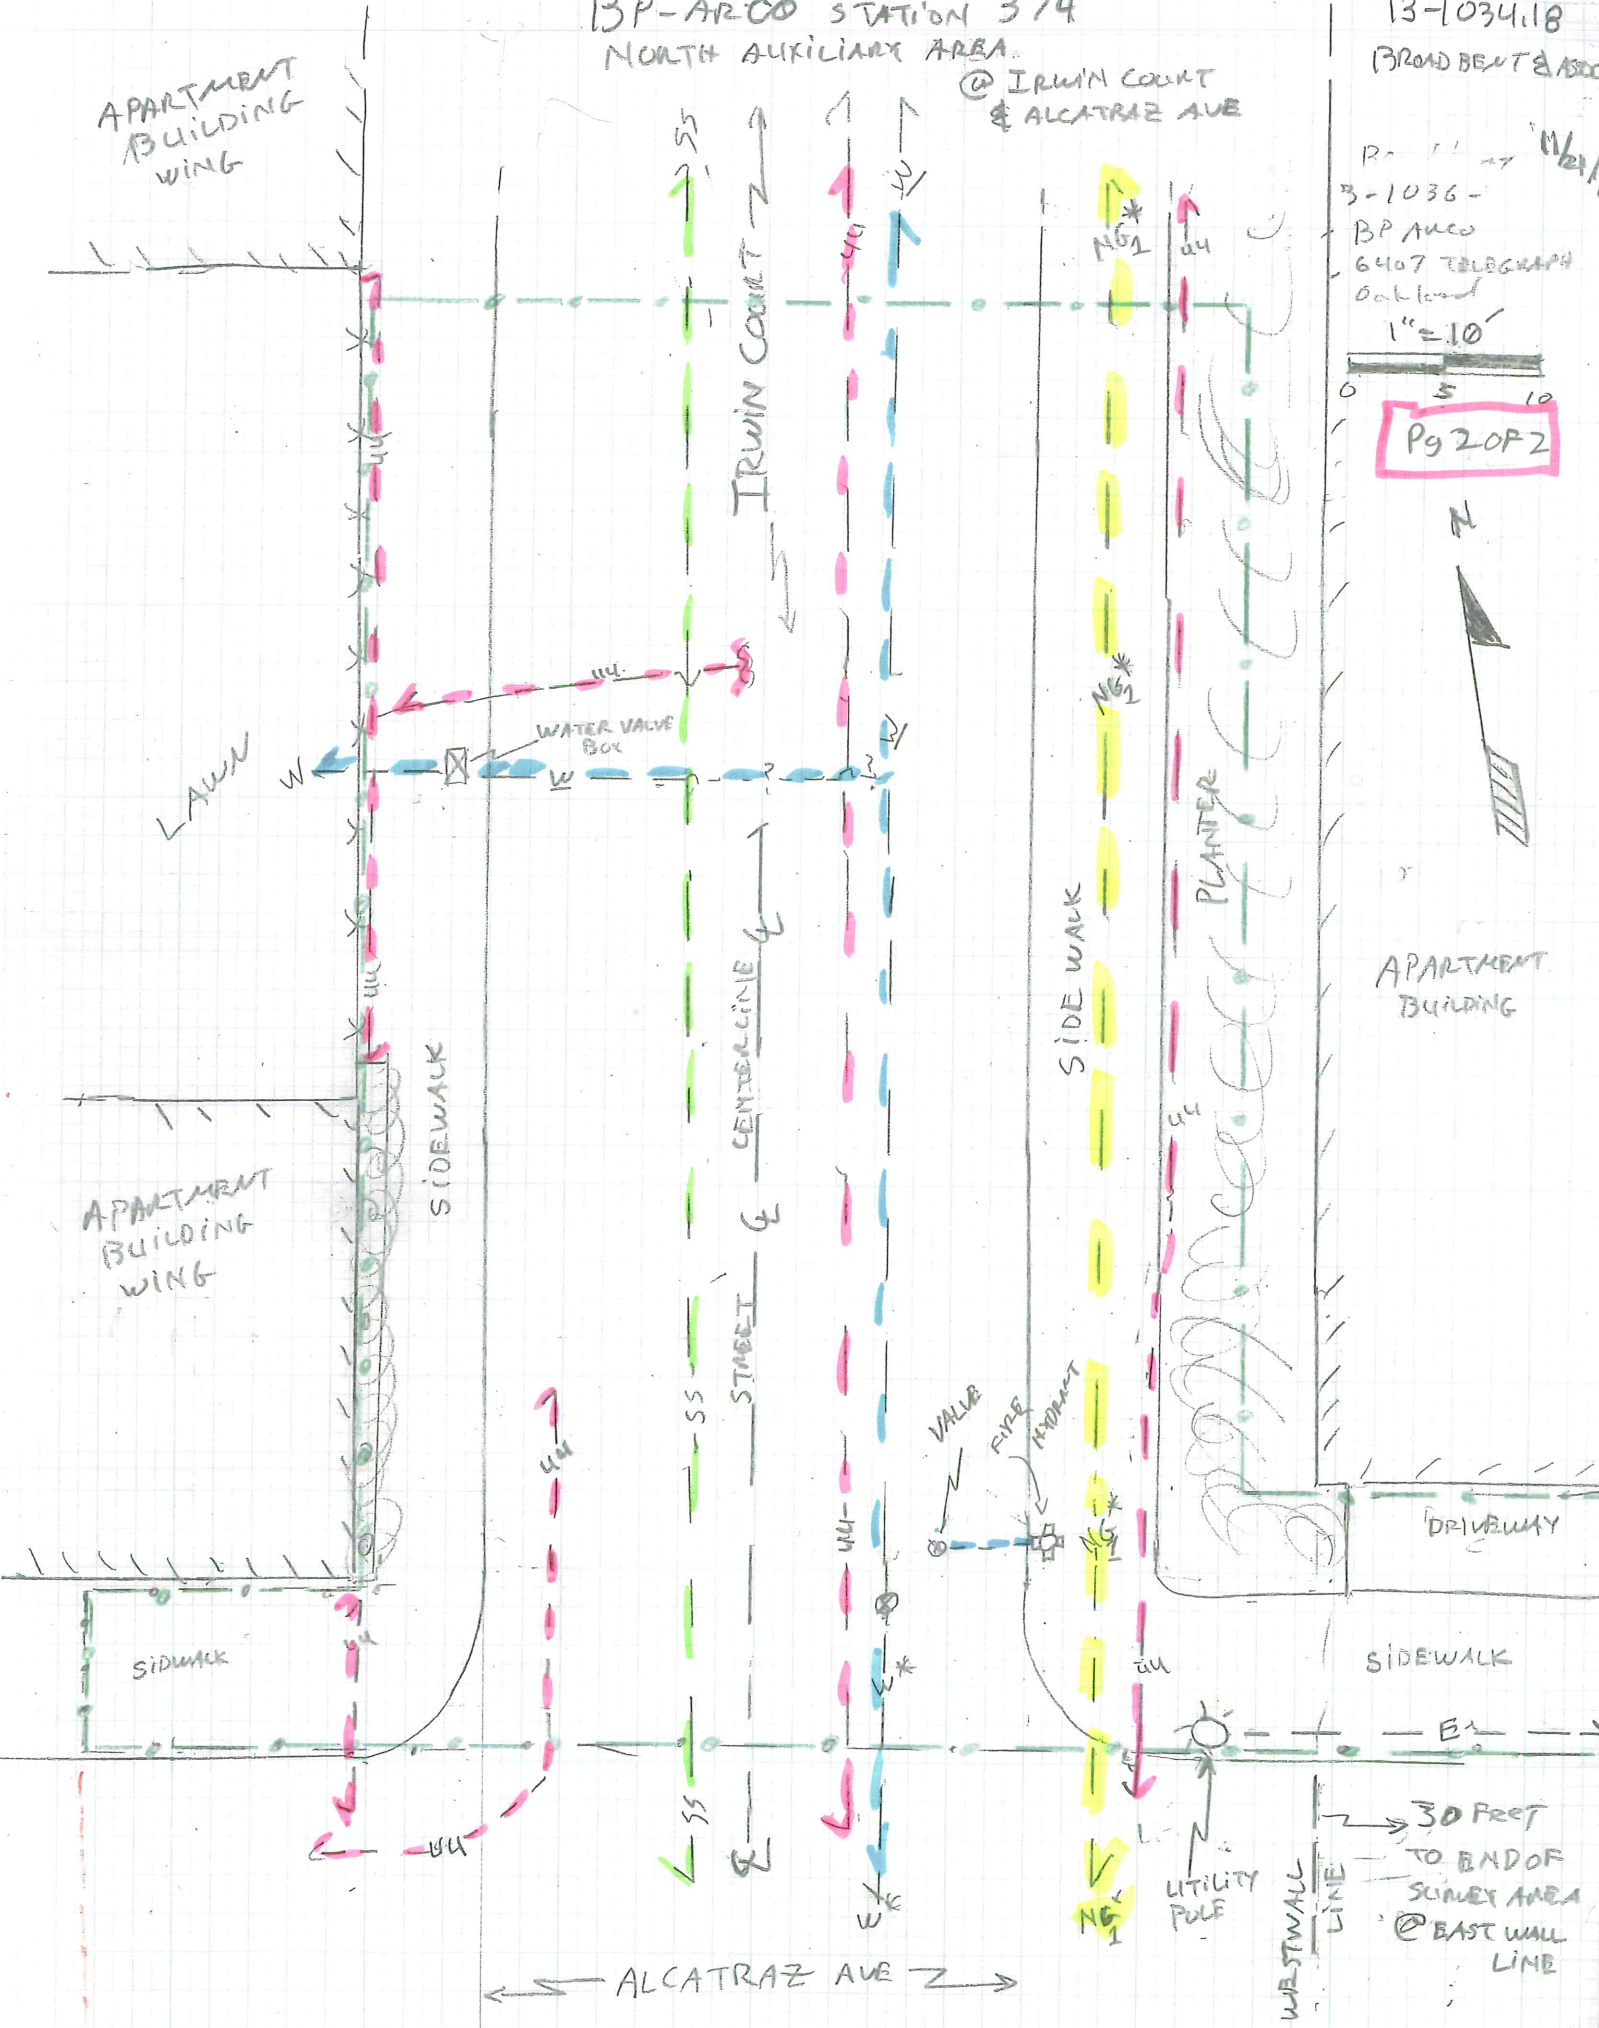 BP-ARCO STATION 374
NORTH AUXILIARY AREA
@ IRWIN COURT
& ALCATRAZ AVE
13-1034.18
BROADBENT & ASSOC
11/21/
3-1036-
BP ARCO
6407 TELEGRAPH
Oakland
1" = 10'
0 5 10
Pg 2 OF 2
N
APARTMENT
BUILDING
WING
SS
IRWIN COURT
UU
W
NG1*
UU
UU
UU
NG1*
WATER VALVE
BOX
W
W
?
?
W
LAWN
PLANTER
SIDEWALK
APARTMENT
BUILDING
UU
CENTERLINE
℄
SIDEWALK
UU
APARTMENT
BUILDING
WING
℄
STREET
SS
UU
VALVE
FIRE
HYDRANT
UU
NG1*
DRIVEWAY
SIDWALK
W*
UU
SIDEWALK
E
UU
SS
℄
W*
NG1*
UTILITY
POLE
WESTWALL
LINE
30 FEET
TO END OF
SURVEY AREA
@ EAST WALL
LINE
ALCATRAZ AVE